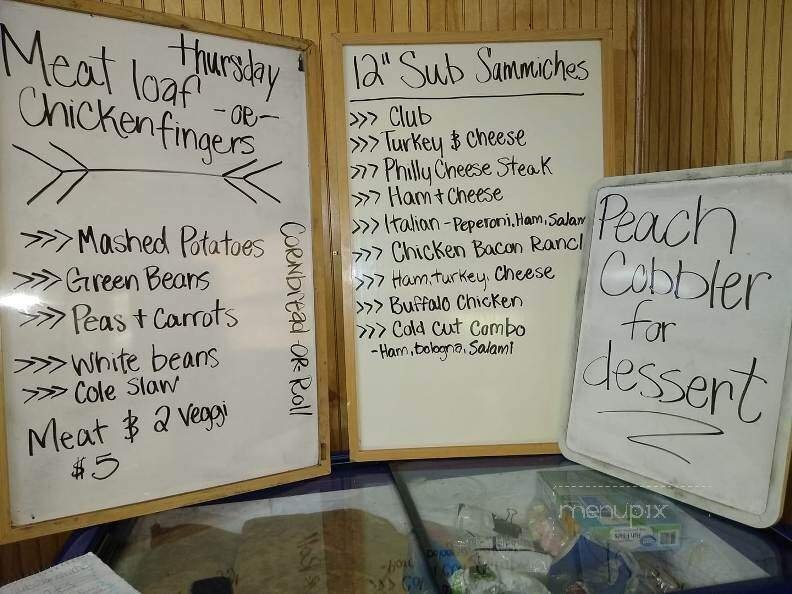 Thursday
Meat loaf
-or-
Chicken fingers
>>> Mashed Potatoes
>>> Green Beans
>>> Peas + Carrots
>>> White beans
>>> Cole Slaw
Meat & 2 Veggi
$5
Cornbread -or- Roll
12" Sub Sammiches
>>> Club
>>> Turkey & Cheese
>>> Philly Cheese Steak
>>> Ham + Cheese
>>> Italian - Peperoni, Ham, Salam
>>> Chicken Bacon Ranch
>>> Ham, turkey, Cheese
>>> Buffalo Chicken
>>> Cold Cut Combo
- Ham, bologna, Salami
Peach
Cobbler
for
dessert
menupix